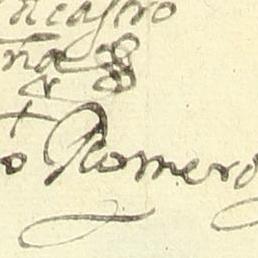 ncastro
ña
o Romero